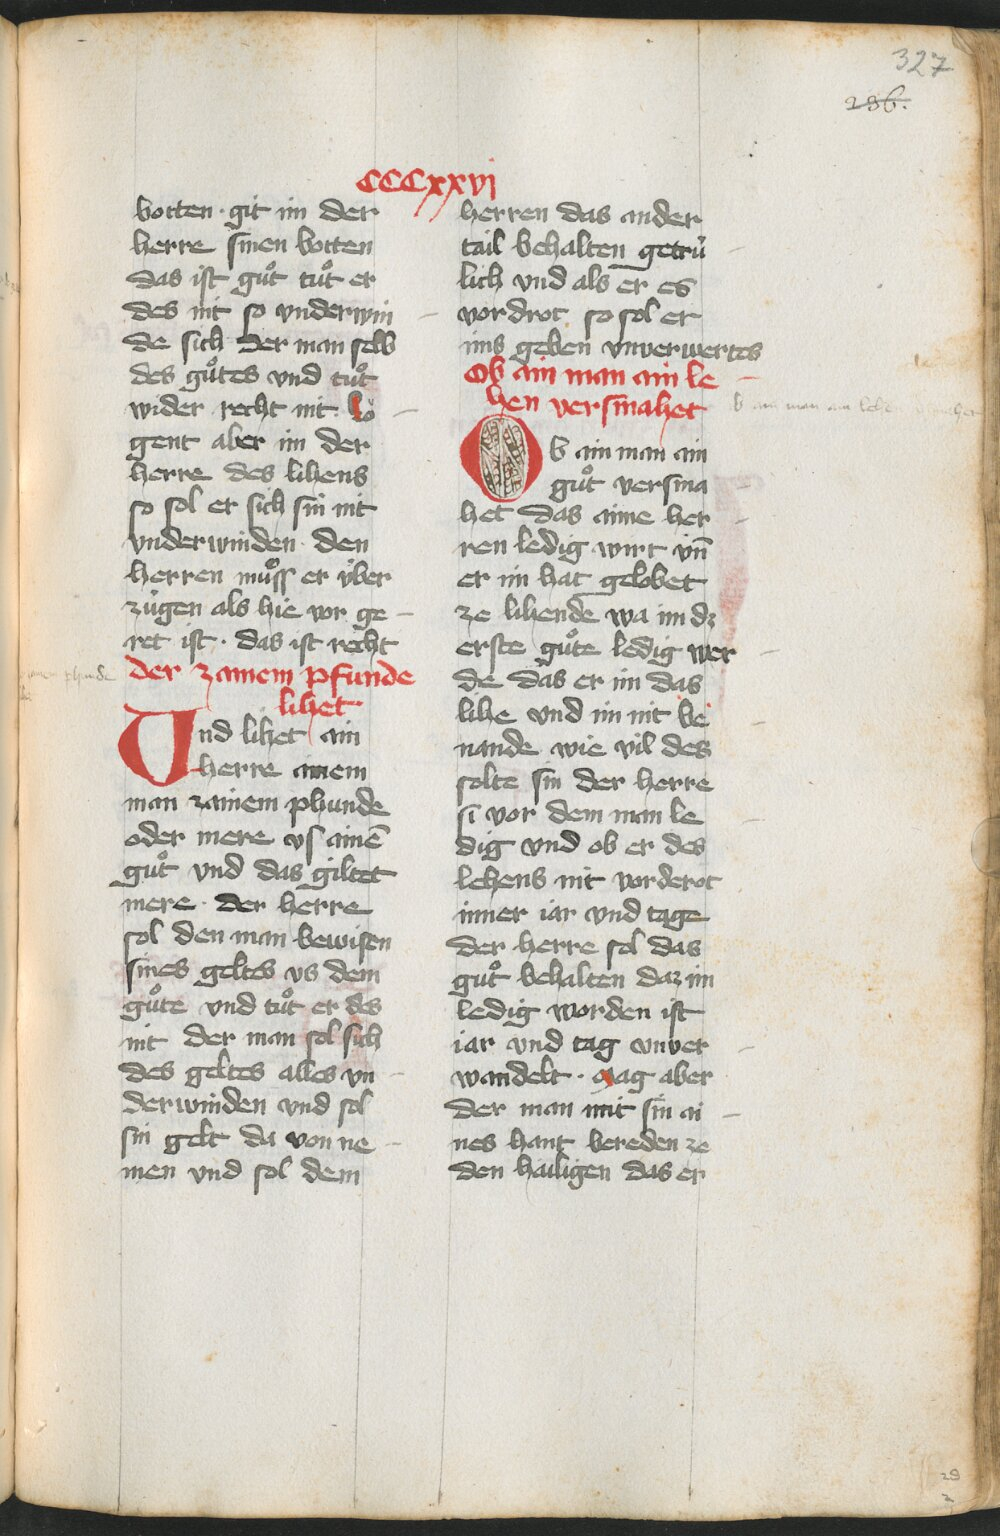 327
236.
CCCxxvj
botten · git im der
herre sinen botten
das ist guͦt tuͦt er
des nit so vnderwin
de sich der man selb
des guͦtes vnd tuͦt
wider recht nit · Loͤ
gent aber im der
herre des lihens
so sol er sich sin nit
vnderwinden · den
herren muͦss er v́ber
zúgen als hie vor ge
ret ist · das ist recht
Der zainem pfunde
lihet
Vnd lihet ain
herre ainem
man zainem phunde
oder mere vs ainē
guͦt vnd das giltet
mere · der herre
sol den man bewisen
sines geltes vs dem
guͦte vnd tuͦt er des
nit der man sol sich
des geltes alles vn
derwinden vnd sol
sin gelt da von ne
men vnd sol dem
herren das ander
tail behalten getrú
lich vnd als er es
vordrot so sol er
ims geben vnverwertes
Ob ain man ain le
hen versmahet
Ob ain man ain
guͦt versma
het das aime her
ren ledig wirt vn̄
er im hat gelobet
ze lihende wa im dz
erste guͦte ledig wer
de das er im das
lihe vnd im nit be
nande wie vil des
solte sin der herre
si vor dem man le
dig vnd ob er des
lehens nit vorderot
inner iar vnd tage
der herre sol das
guͦt behalten daz im
ledig worden ist
iar vnd tag vnver
wandelt · Mag aber
der man mit sin ai
nes hant bereden ze
den hailigen das er